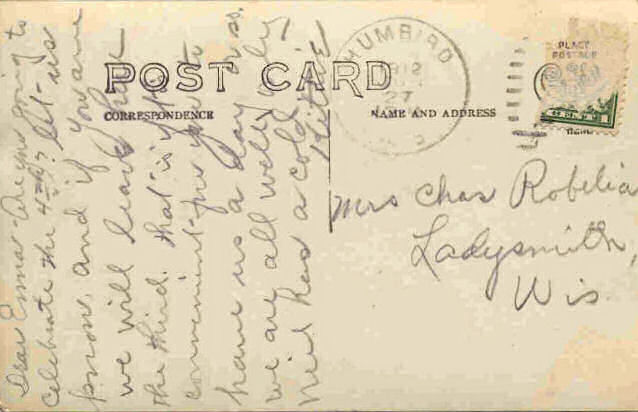 POST CARD
CORRESPONDENCE
NAME AND ADDRESS
HUMBIRD
1912
27
PLACE
POSTAGE
HERE
Dear Emma: Are you going to
celebrate the 4th? let us
know, and if you are
we will leave here
the third. that is if
convenient for you to
have us a day or so.
we are all well only
Neil has a cold.
Mrs Chas Robelia
Ladysmith,
Wis.